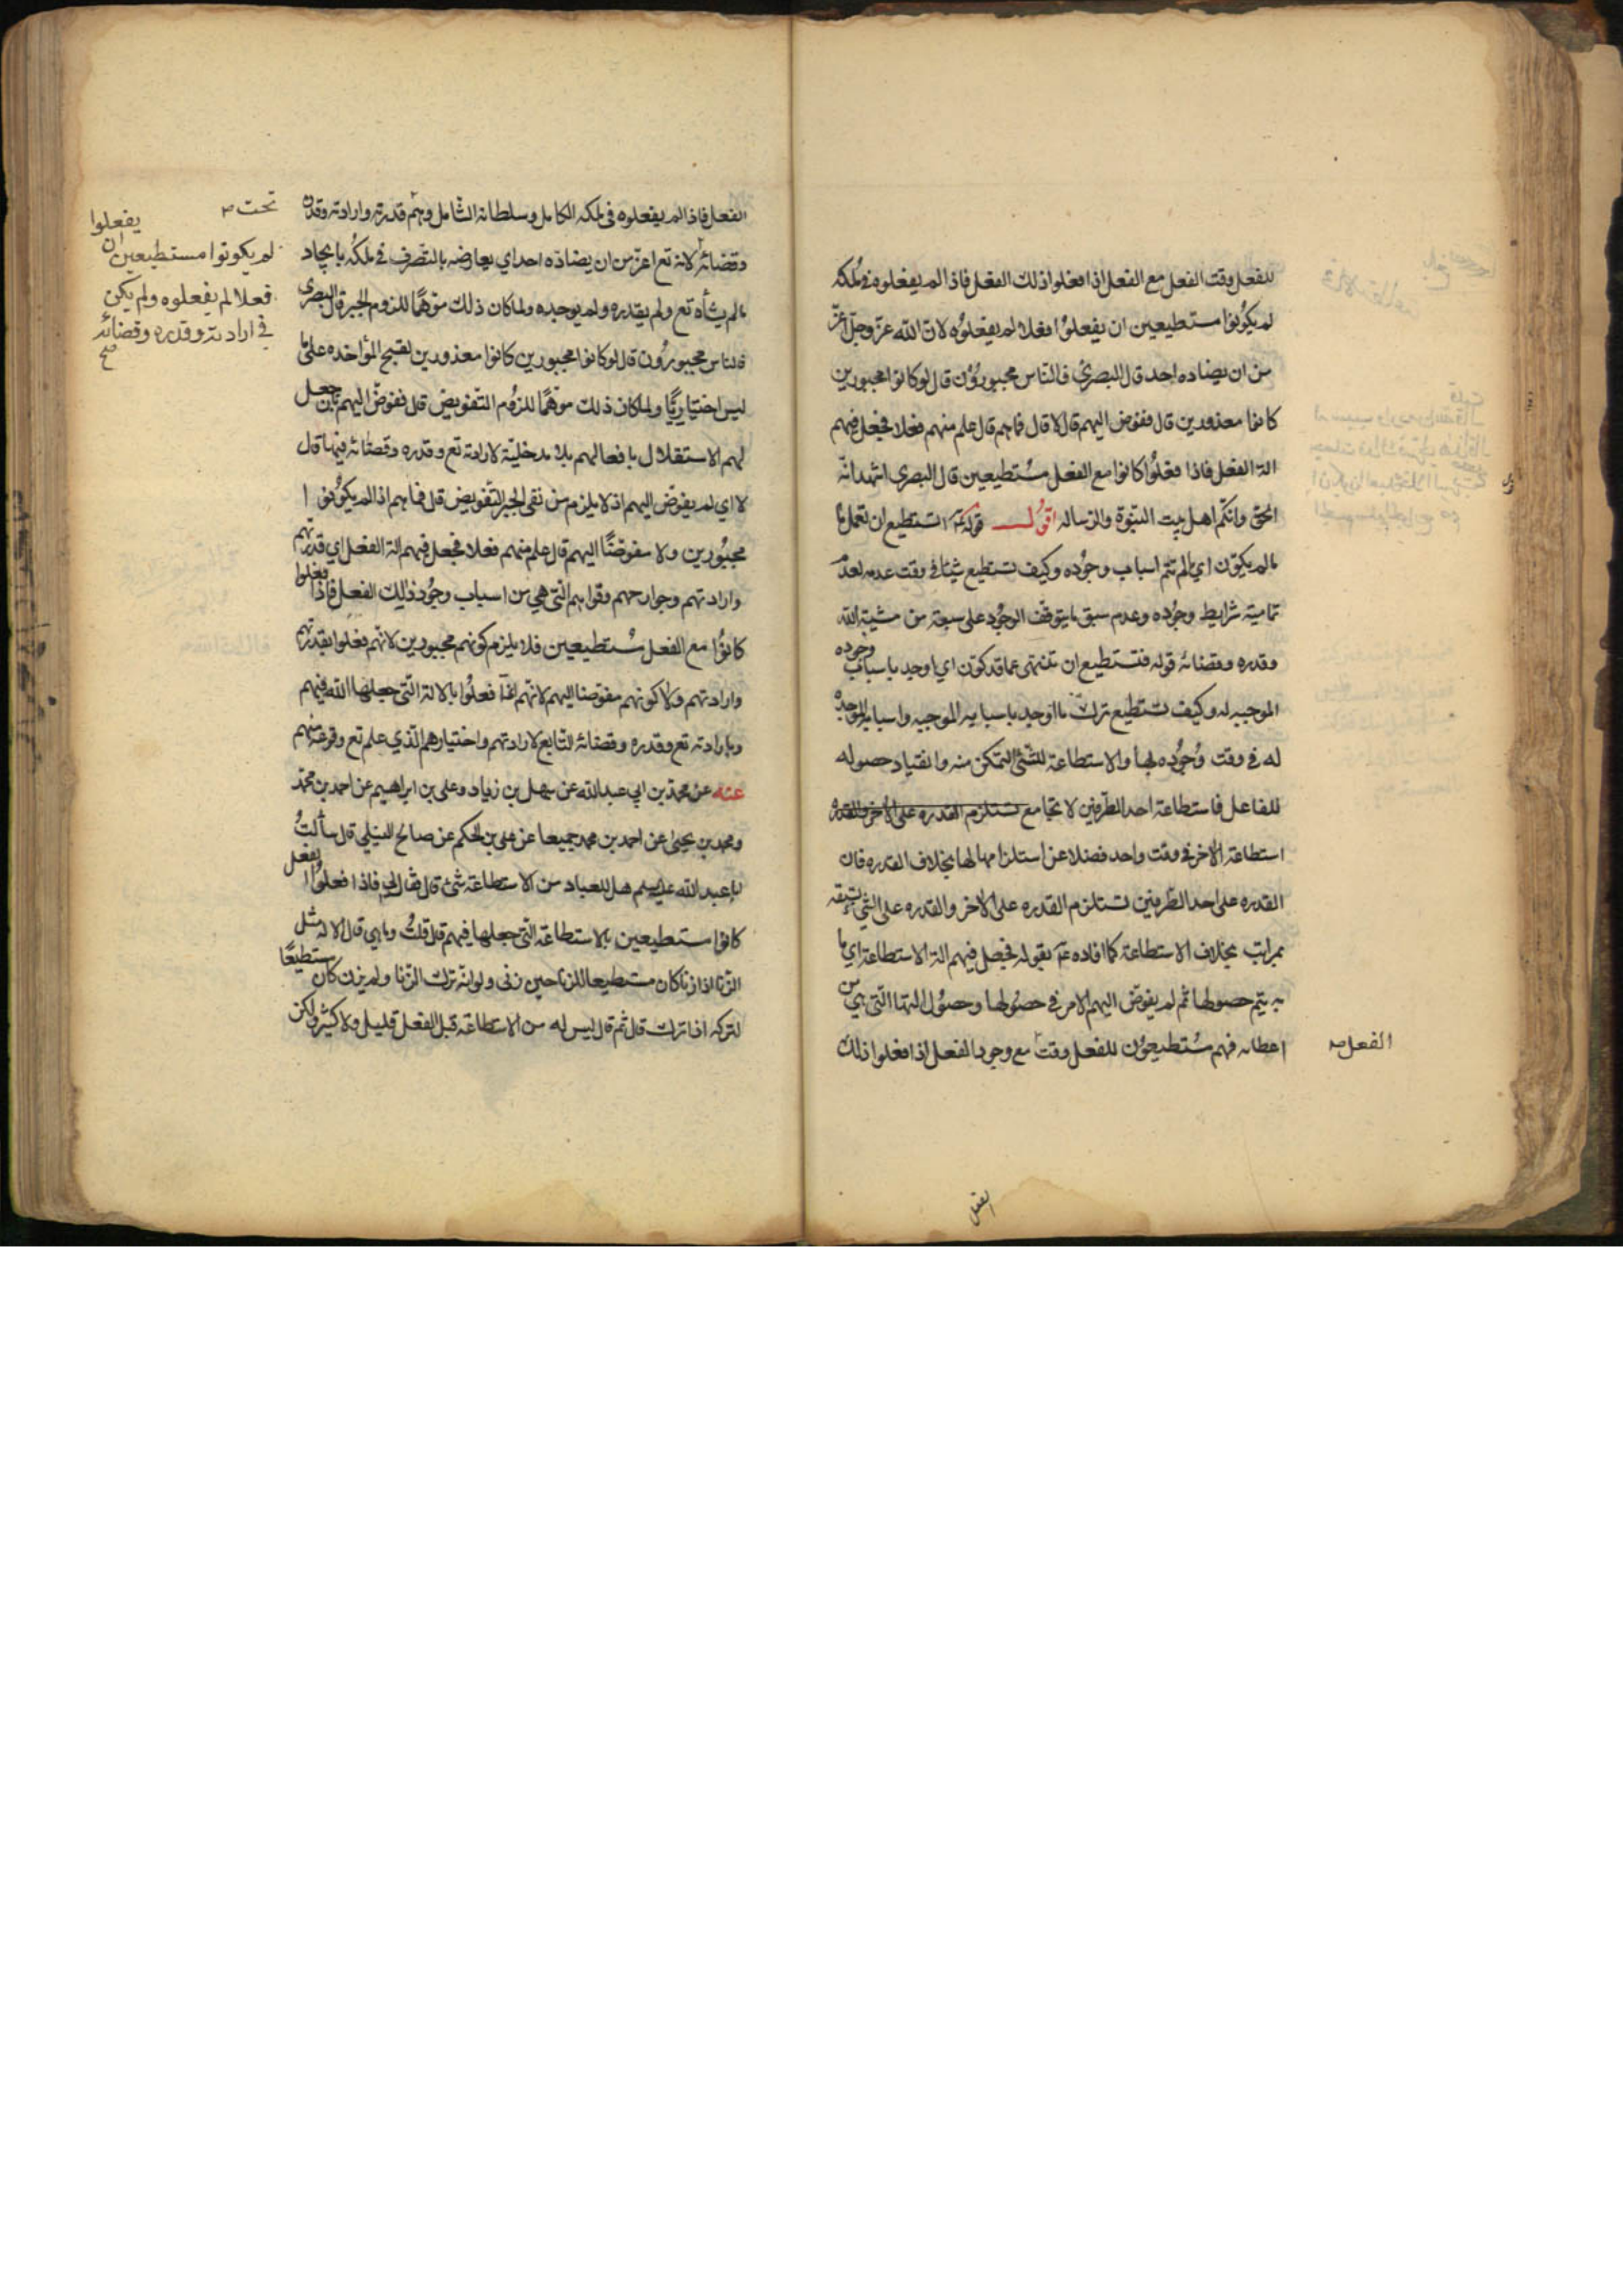 للفعل وقت الفعل مع الفعل اذا فعلوا ذلك الفعل فاذا لم يفعلوه فى ملكه
لم يكونوا مستطيعين ان يفعلوا فعلا لم يفعلوه لان الله عز وجل اعز
من ان يضاده احد قال البصرى فالناس مجبورون قال لو كانوا مجبورين
كانوا معذورين قال ففوض اليهم قال لا قال فما هم قال علم منهم فعلا فجعل فيهم
الة الفعل فاذا فعلوا كانوا مع الفعل مستطيعين قال البصرى اشهد انه
الحق وانكم اهل بيت النبوة والرسالة اقول قوله ع اتستطيع ان تعمل ما
ما لم يكون اي ما لم تتم اسباب وجوده وكيف تستطيع شيئا في وقت عدمه لعدم
تمامية شرايط وجوده وعدم سبق ما يتوقف الوجود على سبعة من مشية الله
وقدره وقضائه قوله فتستطيع ان تنتهى عما قد كون اي اوجد باسباب وجوده
الموجبه له وكيف تستطيع ترك ما اوجد باسبابه الموجبه واسبابه الموجبه
له فى وقت وجوده بها والاستطاعة للشئ التمكن منه وانقياد حصوله
للفاعل فاستطاعة احد الطرفين لا تجامع تستلزم القدره على الاخر والقدره
استطاعة الاخر فى وقت واحد فضلا عن استلزامها لها بخلاف القدره فان
القدره على احد الطرفين تستلزم القدره على الاخر والقدره على الشئ تسبقه
بمراتب بخلاف الاستطاعة كما افاده ع بقوله فجعل فيهم الة الاستطاعة اي ما
به يتم حصولها ثم لم يفوض اليهم الامر فى حصولها وحصول التها التى هي من
اعطائه فهم مستطيعون للفعل وقت مع وجود الفعل اذا فعلوا ذلك
الفعل صح
الفعل
الفعل فاذا لم يفعلوه فى ملكه الكامل وسلطانه الشامل وهم قدرته وارادته وقدره
وقضائه لانه تع اعز من ان يضاده احد اي يعارضه بالتصرف فى ملكه بايجاد
ما لم يشأه تع ولم يقدره ولم يوجده ولما كان ذلك موهما للزوم الجبر قال البصرى
فالناس مجبورون قال لو كانوا مجبورين كانوا معذورين لقبح المؤاخذه على ما
ليس اختياريا ولما كان ذلك موهما للزوم التفويض قال ففوض اليهم بان جعل
لهم الاستقلال بافعالهم بلا مدخلية لارادته تع وقدره وقضائه فيها قال
لا اي لم يفوض اليهم اذ لا يلزم من نفى الجبر التفويض قال فما هم اذا لم يكونوا
مجبورين ولا مفوضا اليهم قال علم منهم فعلا فجعل فيهم الة الفعل اي قدرتهم
وارادتهم وجوارحهم وقواهم التى هي من اسباب وجود ذلك الفعل فاذا فعلوا
كانوا مع الفعل مستطيعين فلا يلزم كونهم مجبورين لانهم فعلوا بقدرتهم
وارادتهم ولا كونهم مفوضا اليهم لانهم انما فعلوا بالالة التى جعلها الله فيهم
وبارادته تع وقدره وقضائه التابع لارادتهم واختيارهم الذي علم تع وقوعه منهم
عنه عن محمد بن ابي عبد الله عن سهل بن زياد وعلى بن ابراهيم عن احمد بن محمد
ومحمد بن يحيى عن احمد بن محمد جميعا عن على بن الحكم عن صالح النيلي قال سألت
ابا عبد الله عليه السلم هل للعباد من الاستطاعة شئ قال فقال لى فاذا فعلوا الفعل
كانوا مستطيعين بالاستطاعة التى جعلها فيهم قال قلت وما هي قال الالة مثل
الزنا اذا زنا كان مستطيعا للزنا حين زنى ولو انه ترك الزنا ولم يزن كان مستطيعا
لتركه اذا ترك قال ثم قال ليس له من الاستطاعة قبل الفعل قليل ولا كثير ولكن
تحت
يفعلوا
لم يكونوا مستطيعين ان
فعلا لم يفعلوه ولم يكن
فى ارادته وقدره وقضائه
صح